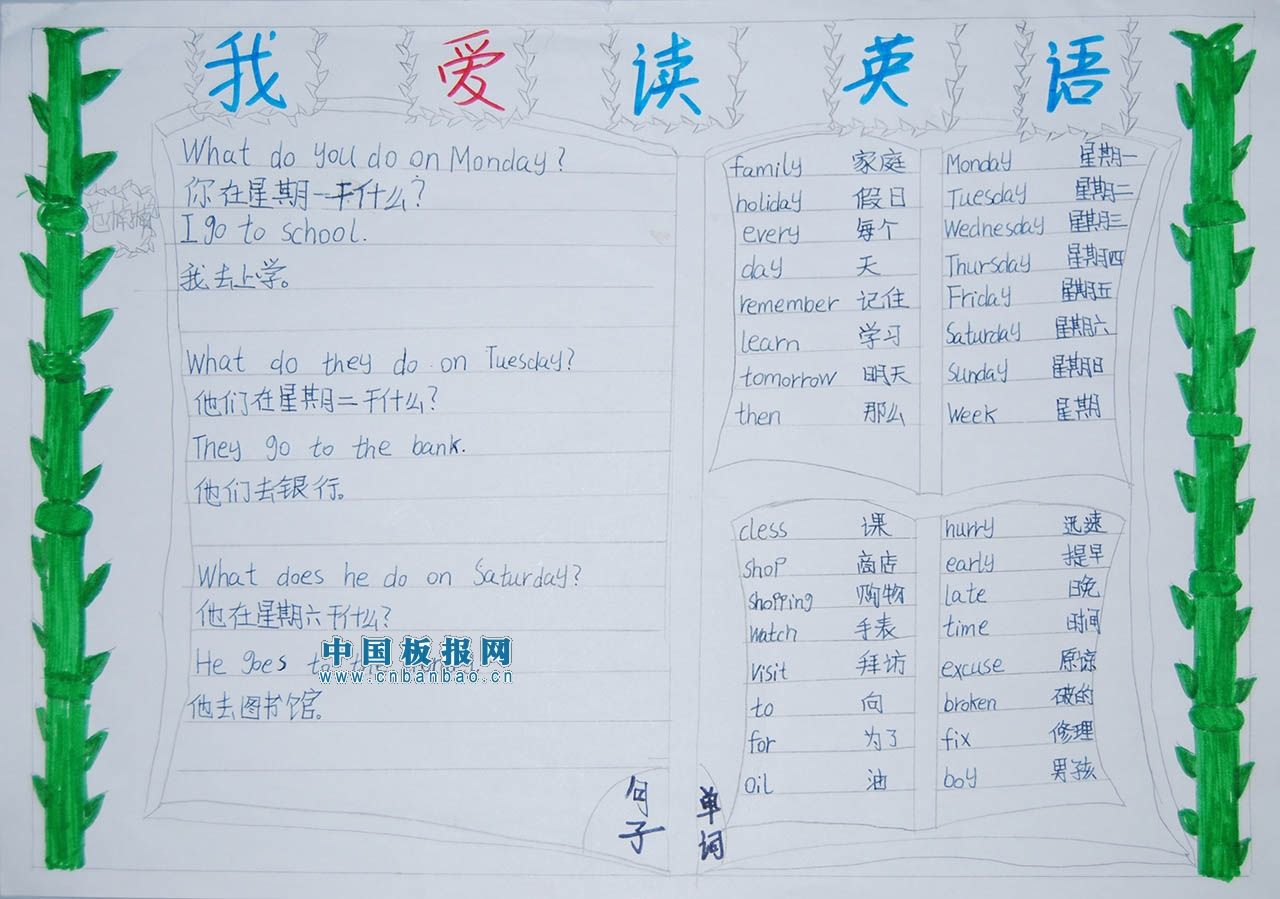 我爱读英语
What do you do on Monday?
你在星期一干什么?
I go to school.
我去上学。
What do they do on Tuesday?
他们在星期二干什么?
They go to the bank.
他们去银行。
What does he do on Saturday?
他在星期六干什么?
He goes to the
中国板报网
www.cnbanbao.cn
他去图书馆。
句子
family 家庭
holiday 假日
every 每个
day 天
remember 记住
learn 学习
tomorrow 明天
then 那么
Monday 星期一
Tuesday 星期二
Wednesday 星期三
Thursday 星期四
Friday 星期五
Saturday 星期六
Sunday 星期日
Week 星期
cless 课
shop 商店
shopping 购物
watch 手表
visit 拜访
to 向
for 为了
oil 油
hurry 迅速
early 提早
late 晚
time 时间
excuse 原谅
broken 破的
fix 修理
boy 男孩
单词